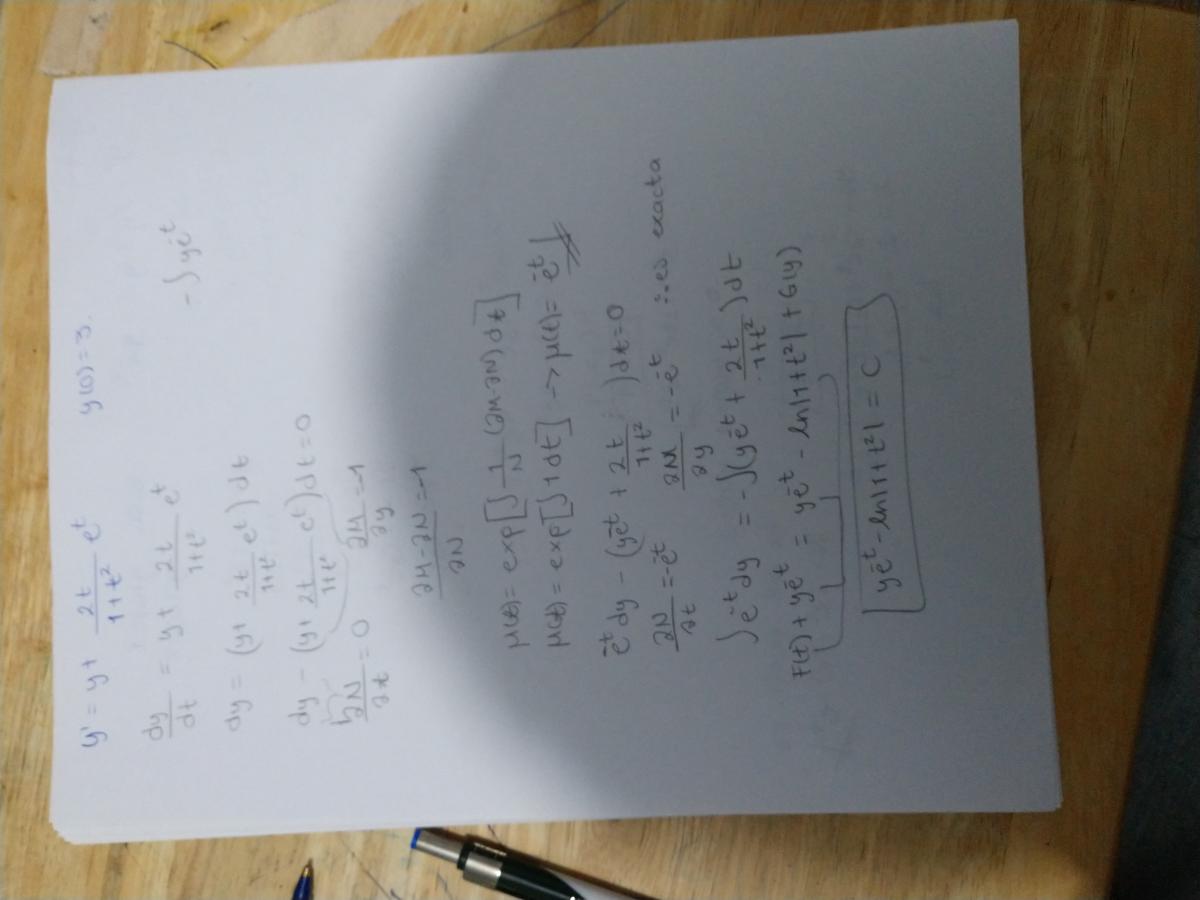 y' = y + 2t/(1+t²) e^t y(0)=3.
dy/dt = y + 2t/(1+t²) e^t -∫ye^-t
dy = (y + 2t/(1+t²) e^t) dt
dy - (y + 2t/(1+t²) e^t) dt = 0
∂N/∂t = 0 ∂M/∂y = -1
(∂M-∂N)/∂N = -1
μ(t) = exp[∫ 1/N (∂M-∂N) dt]
μ(t) = exp[∫ 1 dt] -> μ(t) = e^-t
e^-t dy - (ye^-t + 2t/(1+t²)) dt = 0
∂N/∂t = -e^-t ∂M/∂y = -e^-t ∴ es exacta
∫e^-t dy = -∫(ye^-t + 2t/(1+t²)) dt
F(t) + ye^-t = ye^-t - ln|1+t²| + G(y)
ye^-t - ln|1+t²| = C